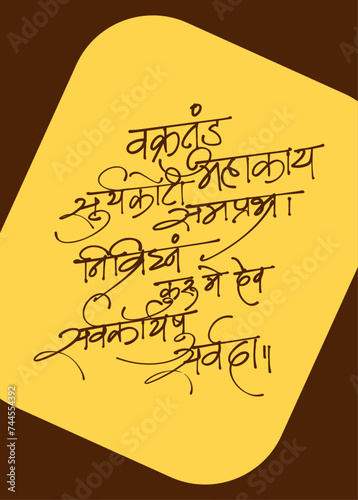 वक्रतुंड
महाकाय
सुर्यकोटी
समप्रभ।
निर्विघ्नं
कुरु मे देव
सर्वकार्येषु
सर्वदा॥
Adobe Stock | #744554392